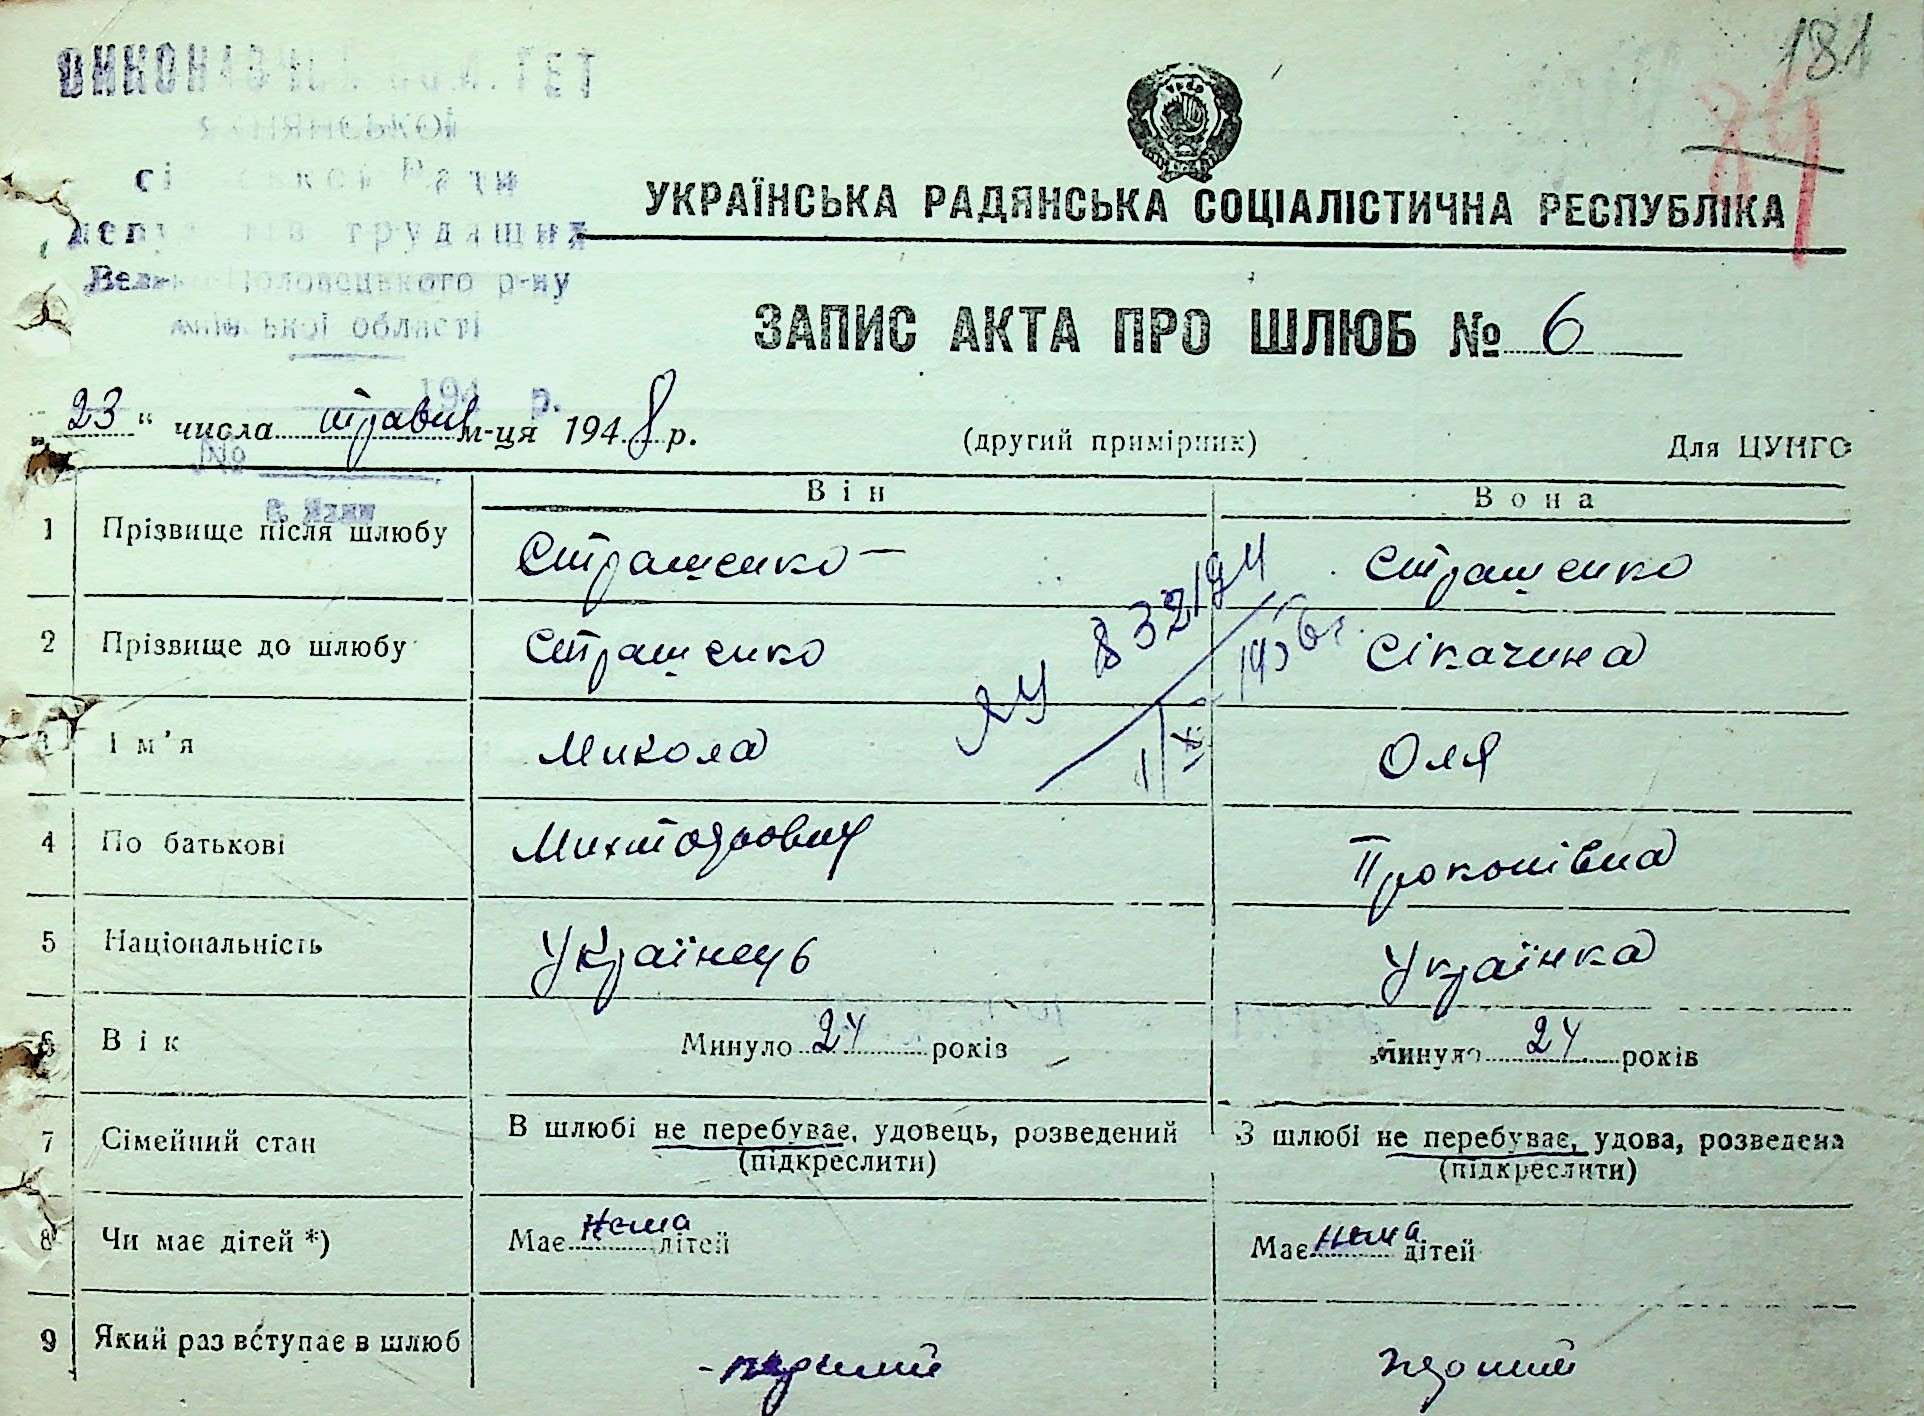 181
ВИКОНАВЧИЙ КОМІТЕТ
сільської Ради
депутатів трудящих
Велико-Половецького р-ну
Київської області
194 р.
№
УКРАЇНСЬКА РАДЯНСЬКА СОЦІАЛІСТИЧНА РЕСПУБЛІКА
ЗАПИС АКТА ПРО ШЛЮБ № 6
„23“ числа травня м-ця 1948 р. (другий примірник) Для ЦУНГО
Він Вона
1 Прізвище після шлюбу Страшенко Страшенко
2 Прізвище до шлюбу Страшенко Сікачина
3 Ім'я Микола Оля
ЯУ 832194
1/IX 1956 г.
4 По батькові Прокопівна
5 Національність Українець Українка
6 Вік Минуло 24 років Минуло 24 років
7 Сімейний стан В шлюбі не перебуває, удовець, розведений В шлюбі не перебуває, удова, розведена
(підкреслити) (підкреслити)
8 Чи має дітей *) Має нема дітей Має нема дітей
9 Який раз вступає в шлюб - перший перший